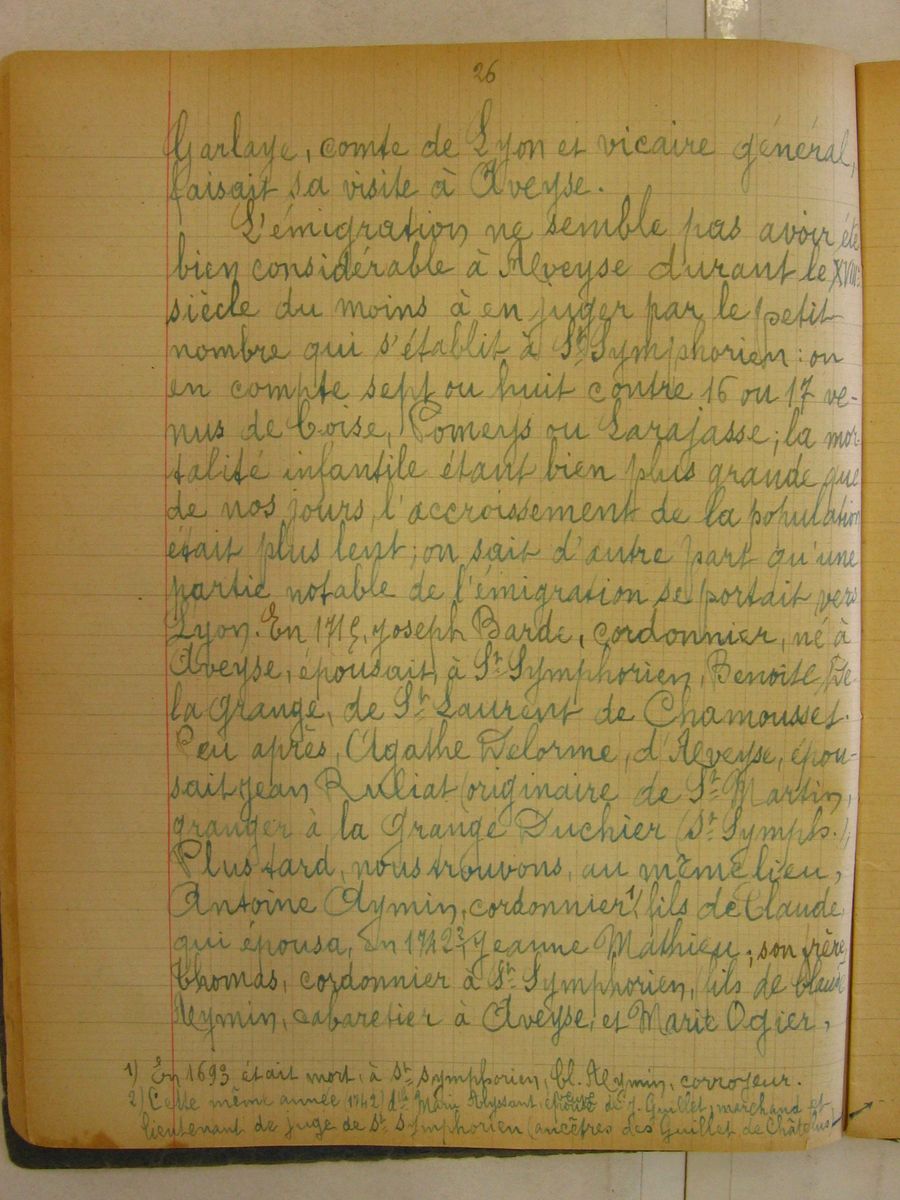 26
Garlaye, comte de Lyon et vicaire général,
faisait sa visite à Aveyse.
L'émigration ne semble pas avoir été
bien considérable à Aveyse durant le XVIIIe
siècle du moins à en juger par le petit
nombre qui s'établit à St Symphorien : on
en compte sept ou huit contre 16 ou 17 ve-
nus de Coise, Pomeys ou Larajasse ; la mor-
talité infantile étant bien plus grande que
de nos jours, l'accroissement de la population
était plus lent ; on sait d'autre part qu'une
partie notable de l'émigration se portait vers
Lyon. En 1715, Joseph Barde, cordonnier, né à
Aveyse, épousait, à St Symphorien, Benoite De-
la grange, de St Laurent de Chamousset.
Peu après, Agathe Delorme, d'Aveyse, épou-
sait Jean Ruliat (originaire de St Martin,
granger à la Grange Duchier (St Symph.),
Plus tard, nous trouvons, au même lieu,
Antoine Aymin, cordonnier 1), fils de Claude,
qui épousa, en 1742 2), Jeanne Mathieu ; son frère
Thomas, cordonnier à St Symphorien, fils de Claude
Aymin, cabaretier à Aveyse, et Marie Ogier,
1) En 1693 était mort, à St Symphorien, Cl. Aymin, corroyeur.
2) Cette même année 1742) dlle Marie Alyssant, de J. Guillet, marchand et
lieutenant de juge de St Symphorien (ancêtres des Guillet de Châtelus)